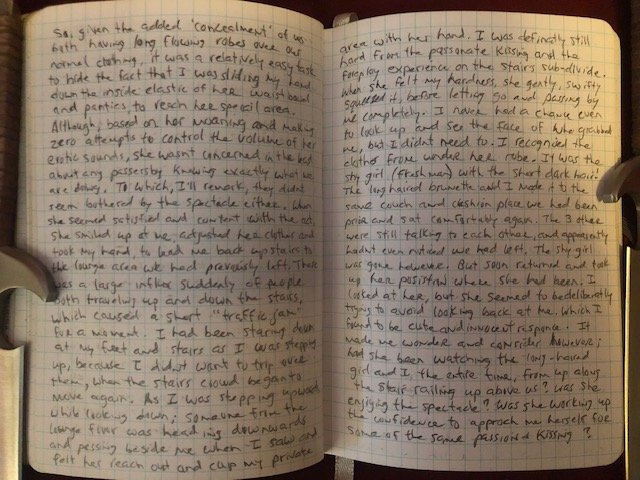 So, given the added 'concealment' of us
both having long flowing robes over our
normal clothing, it was a relatively easy task
to hide the fact that I was sliding my hand
down the inside elastic of her waist band
and panties, to reach her special area.
Although, based on her moaning and making
zero attempts to control the volume of her
erotic sounds, she wasnt concerned in the least
about any passersby knowing exactly what we
are doing. To which, I'll remark, they didnt
seem bothered by the spectacle either. When
she seemed satisfied and content with the act,
she smiled up at me, adjusted her clothes and
took my hand, to lead me back upstairs to
the lounge area we had previously left. There
was a large influx suddenly of people
both traveling up and down the stairs,
which caused a short "traffic jam"
for a moment. I had been staring down
at my feet and stairs as I was stepping
up, because I didnt want to trip over
them, when the stairs crowd began to
move again. As I was stepping upward
while looking down; someone from the
lounge floor was heading downwards
and passing beside me when I saw and
felt her reach out and cup my private
area with her hand. I was definatly still
hard from the passionate kissing and the
foreplay experience on the stairs sub-divide.
When she felt my hardness, she gently, swiftly
squeezed it, before letting go and passing by
me completely. I never had a chance even
to look up and see the face of who grabbed
me, but I didnt need to. I recognized the
clothes from under her robe. It was the
shy girl (freshman) with the short dark hair.
The long haired brunette and I made it to the
same couch and cushion place we had been
prior and sat comfortably again. The 3 other
were still talking to each other, and apparently
hadnt even noticed we had left. The shy girl
was gone however. But soon returned and took
up her position where she had been. I
looked at her, but she seemed to be deliberatly
trying to avoid looking back at me. Which I
found to be cute and innocent response. It
made me wonder and consider however;
had she been watching the long-haired
girl and I, the entire time, from up along
the stair railing up above us? Was she
enjoying the spectacle? Was she working up
the confidence to approach me herself for
some of the same passion & kissing?